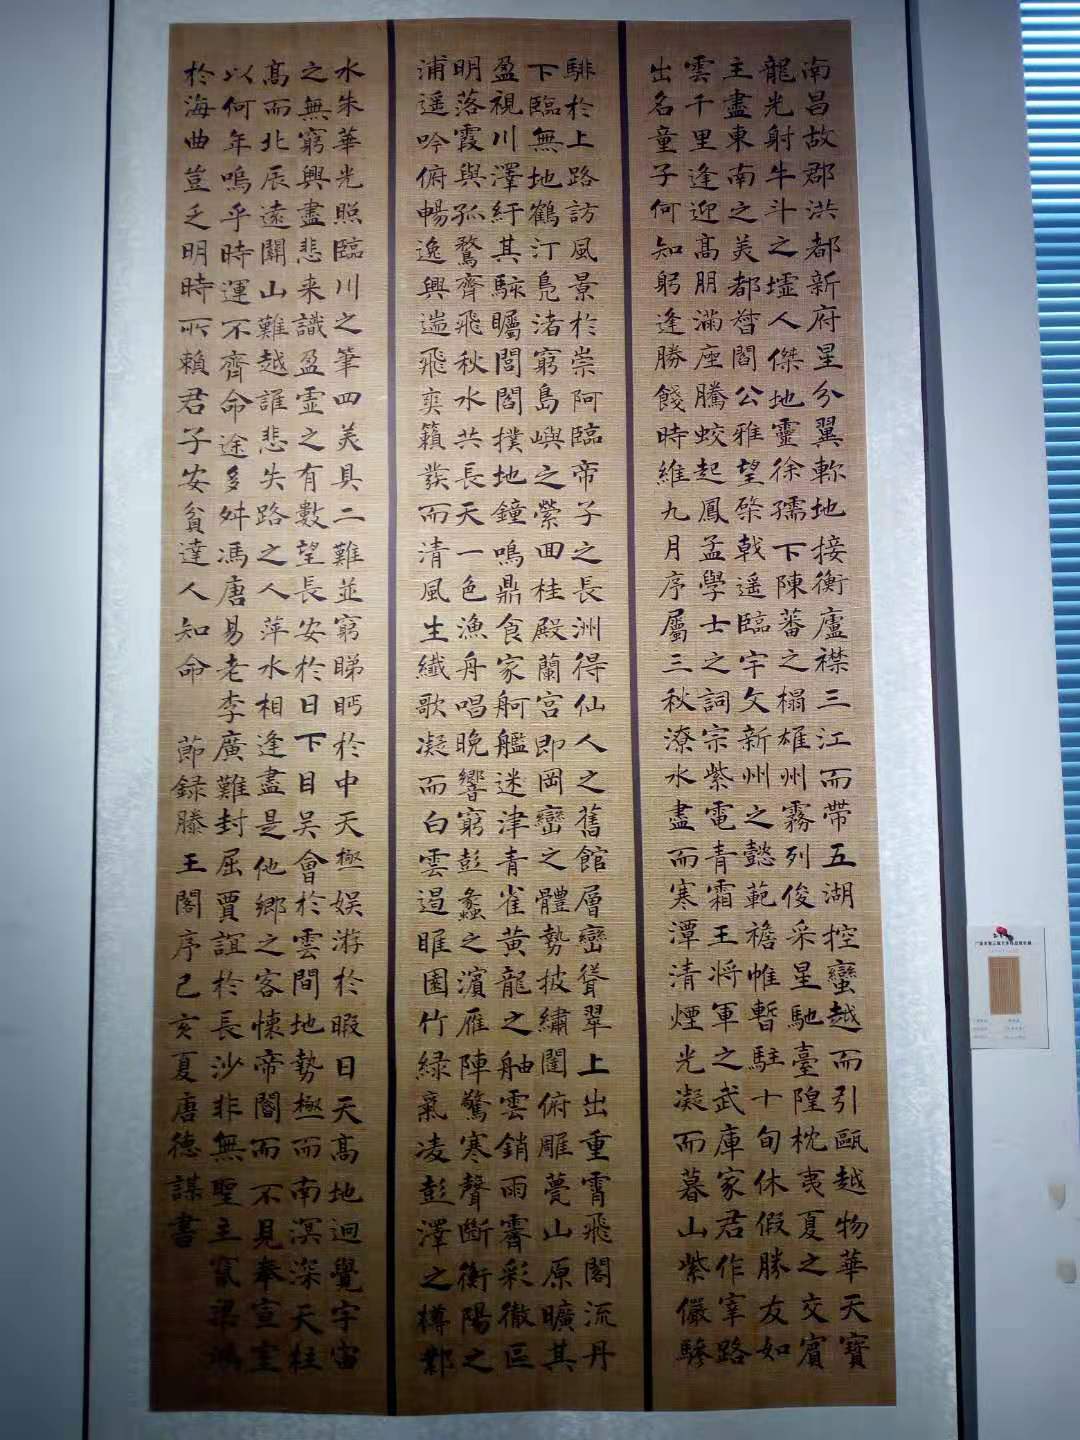 南昌故郡洪都新府星分翼軫地接衡廬襟三江而帶五湖控蠻越而引甌越物華天寶
龍光射牛斗之墟人傑地靈徐孺下陳蕃之榻雄州霧列俊采星馳臺隍枕夷夏之交賓
主盡東南之美都督閻公雅望棨戟遥臨宇文新州之懿範襜帷暫駐十旬休假勝友如
雲千里逢迎高朋滿座騰蛟起鳳孟學士之詞宗紫電青霜王將軍之武庫家君作宰路
出名童子何知躬逢勝餞時維九月序屬三秋潦水盡而寒潭清煙光凝而暮山紫儼驂
騑於上路訪風景於崇阿臨帝子之長洲得仙人之舊館層巒聳翠上出重霄飛閣流丹
下臨無地鶴汀鳧渚窮島嶼之縈回桂殿蘭宫即岡巒之體勢披繡闥俯雕甍山原曠其
盈視川澤紆其駭矚閭閻撲地鐘鳴鼎食家舸艦迷津青雀黄龍之舳雲銷雨霽彩徹區
明落霞與孤鶩齊飛秋水共長天一色漁舟唱晚響窮彭蠡之濱雁陣驚寒聲斷衡陽之
浦遥吟俯暢逸興遄飛爽籟發而清風生纖歌凝而白雲遏睢園竹緑氣凌彭澤之樽鄴
水朱華光照臨川之筆四美具二難並窮睇眄於中天極娱游於暇日天高地迥覺宇宙
之無窮興盡悲来識盈虚之有數望長安於日下目吴會於雲間地勢極而南溟深天柱
高而北辰遠關山難越誰悲失路之人萍水相逢盡是他鄉之客懷帝閽而不見奉宣室
以何年嗚乎時運不齊命途多舛馮唐易老李廣難封屈賈誼於長沙非無聖主竄梁鴻
於海曲豈乏明時所賴君子安貧達人知命 節録滕王閣序己亥夏唐德謀書